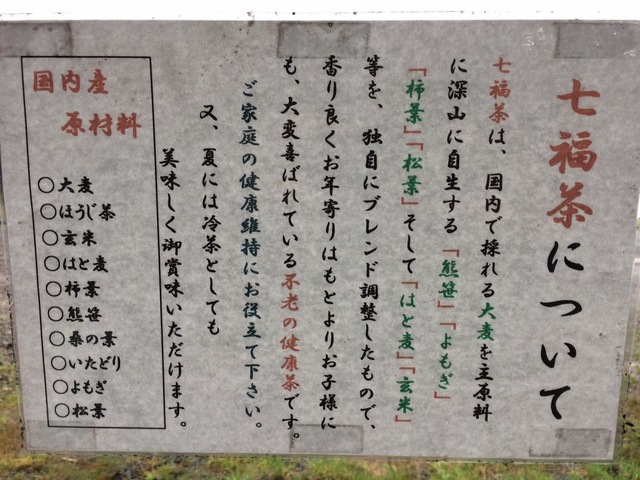 七福茶について
七福茶は、国内で採れる大麦を主原料
に深山に自生する「熊笹」「よもぎ」
「柿葉」「松葉」そして「はと麦」「玄米」
等を、独自にブレンド調整したもので、
香り良くお年寄りはもとよりお子様に
も、大変喜ばれている不老の健康茶です。
ご家庭の健康維持にお役立て下さい。
又、夏には冷茶としても
美味しく御賞味いただけます。
国内産
原材料
○大麦
○ほうじ茶
○玄米
○はと麦
○柿葉
○熊笹
○桑の葉
○いたどり
○よもぎ
○松葉